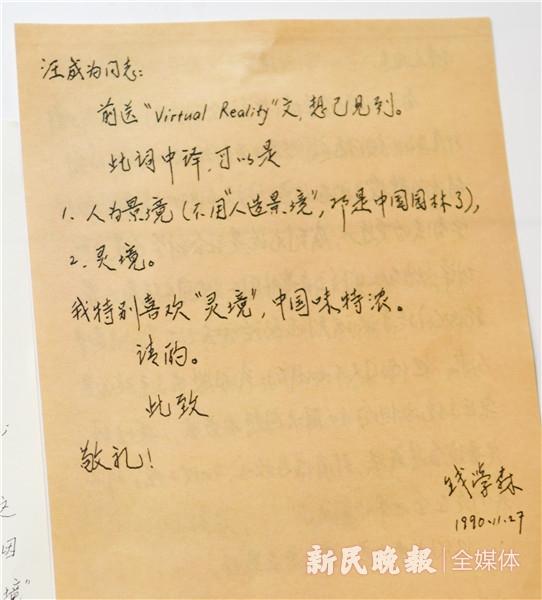 汪成为同志:
前送"Virtual Reality"文,想已见到。
此词中译,可以是
1. 人为景境(不用"人造景境",那是中国园林了),
2. 灵境。
我特别喜欢"灵境",中国味特浓。
请酌。
此致
敬礼!
钱学森
1990.11.27
这
因
境"
新民晚报|全媒体